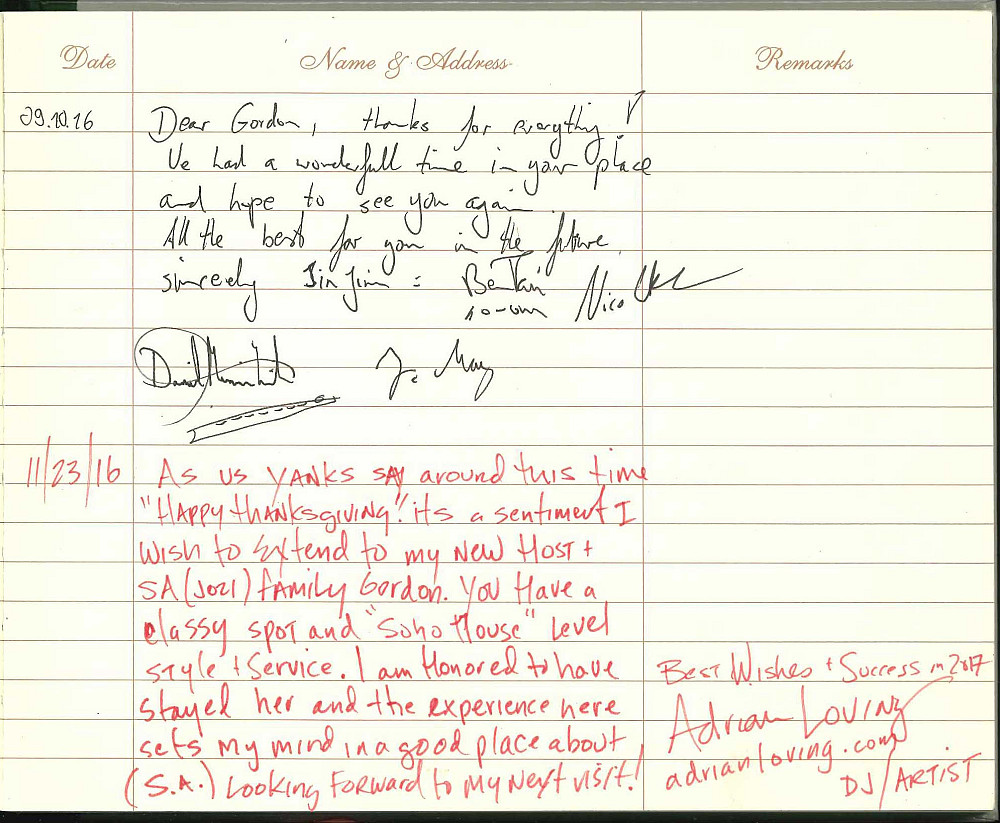 Date Name & Address Remarks
09.10.16 Dear Gordon, thanks for everything!
We had a wonderfull time in your place
and hope to see you again.
All the best for you in the future.
sincerely Jin Jim = Nico
11/23/16 As us YANKS SAY around this time
"HAPPY tHANKsgIVING"! its a sentiment I
WISH to Extend to my New Host +
SA (JOZI) fAMILY Gordon. YOU Have a
classy SPOT and "Soho House" Level
STYLE + Service. I am Honored to have
stayed her and the experience here
sets My mind in a good place about
(S.A.) Looking Forward to My Next visit!
Best Wishes + Success in 2017
Adrian Loving
adrianloving.com
DJ/ARTIST